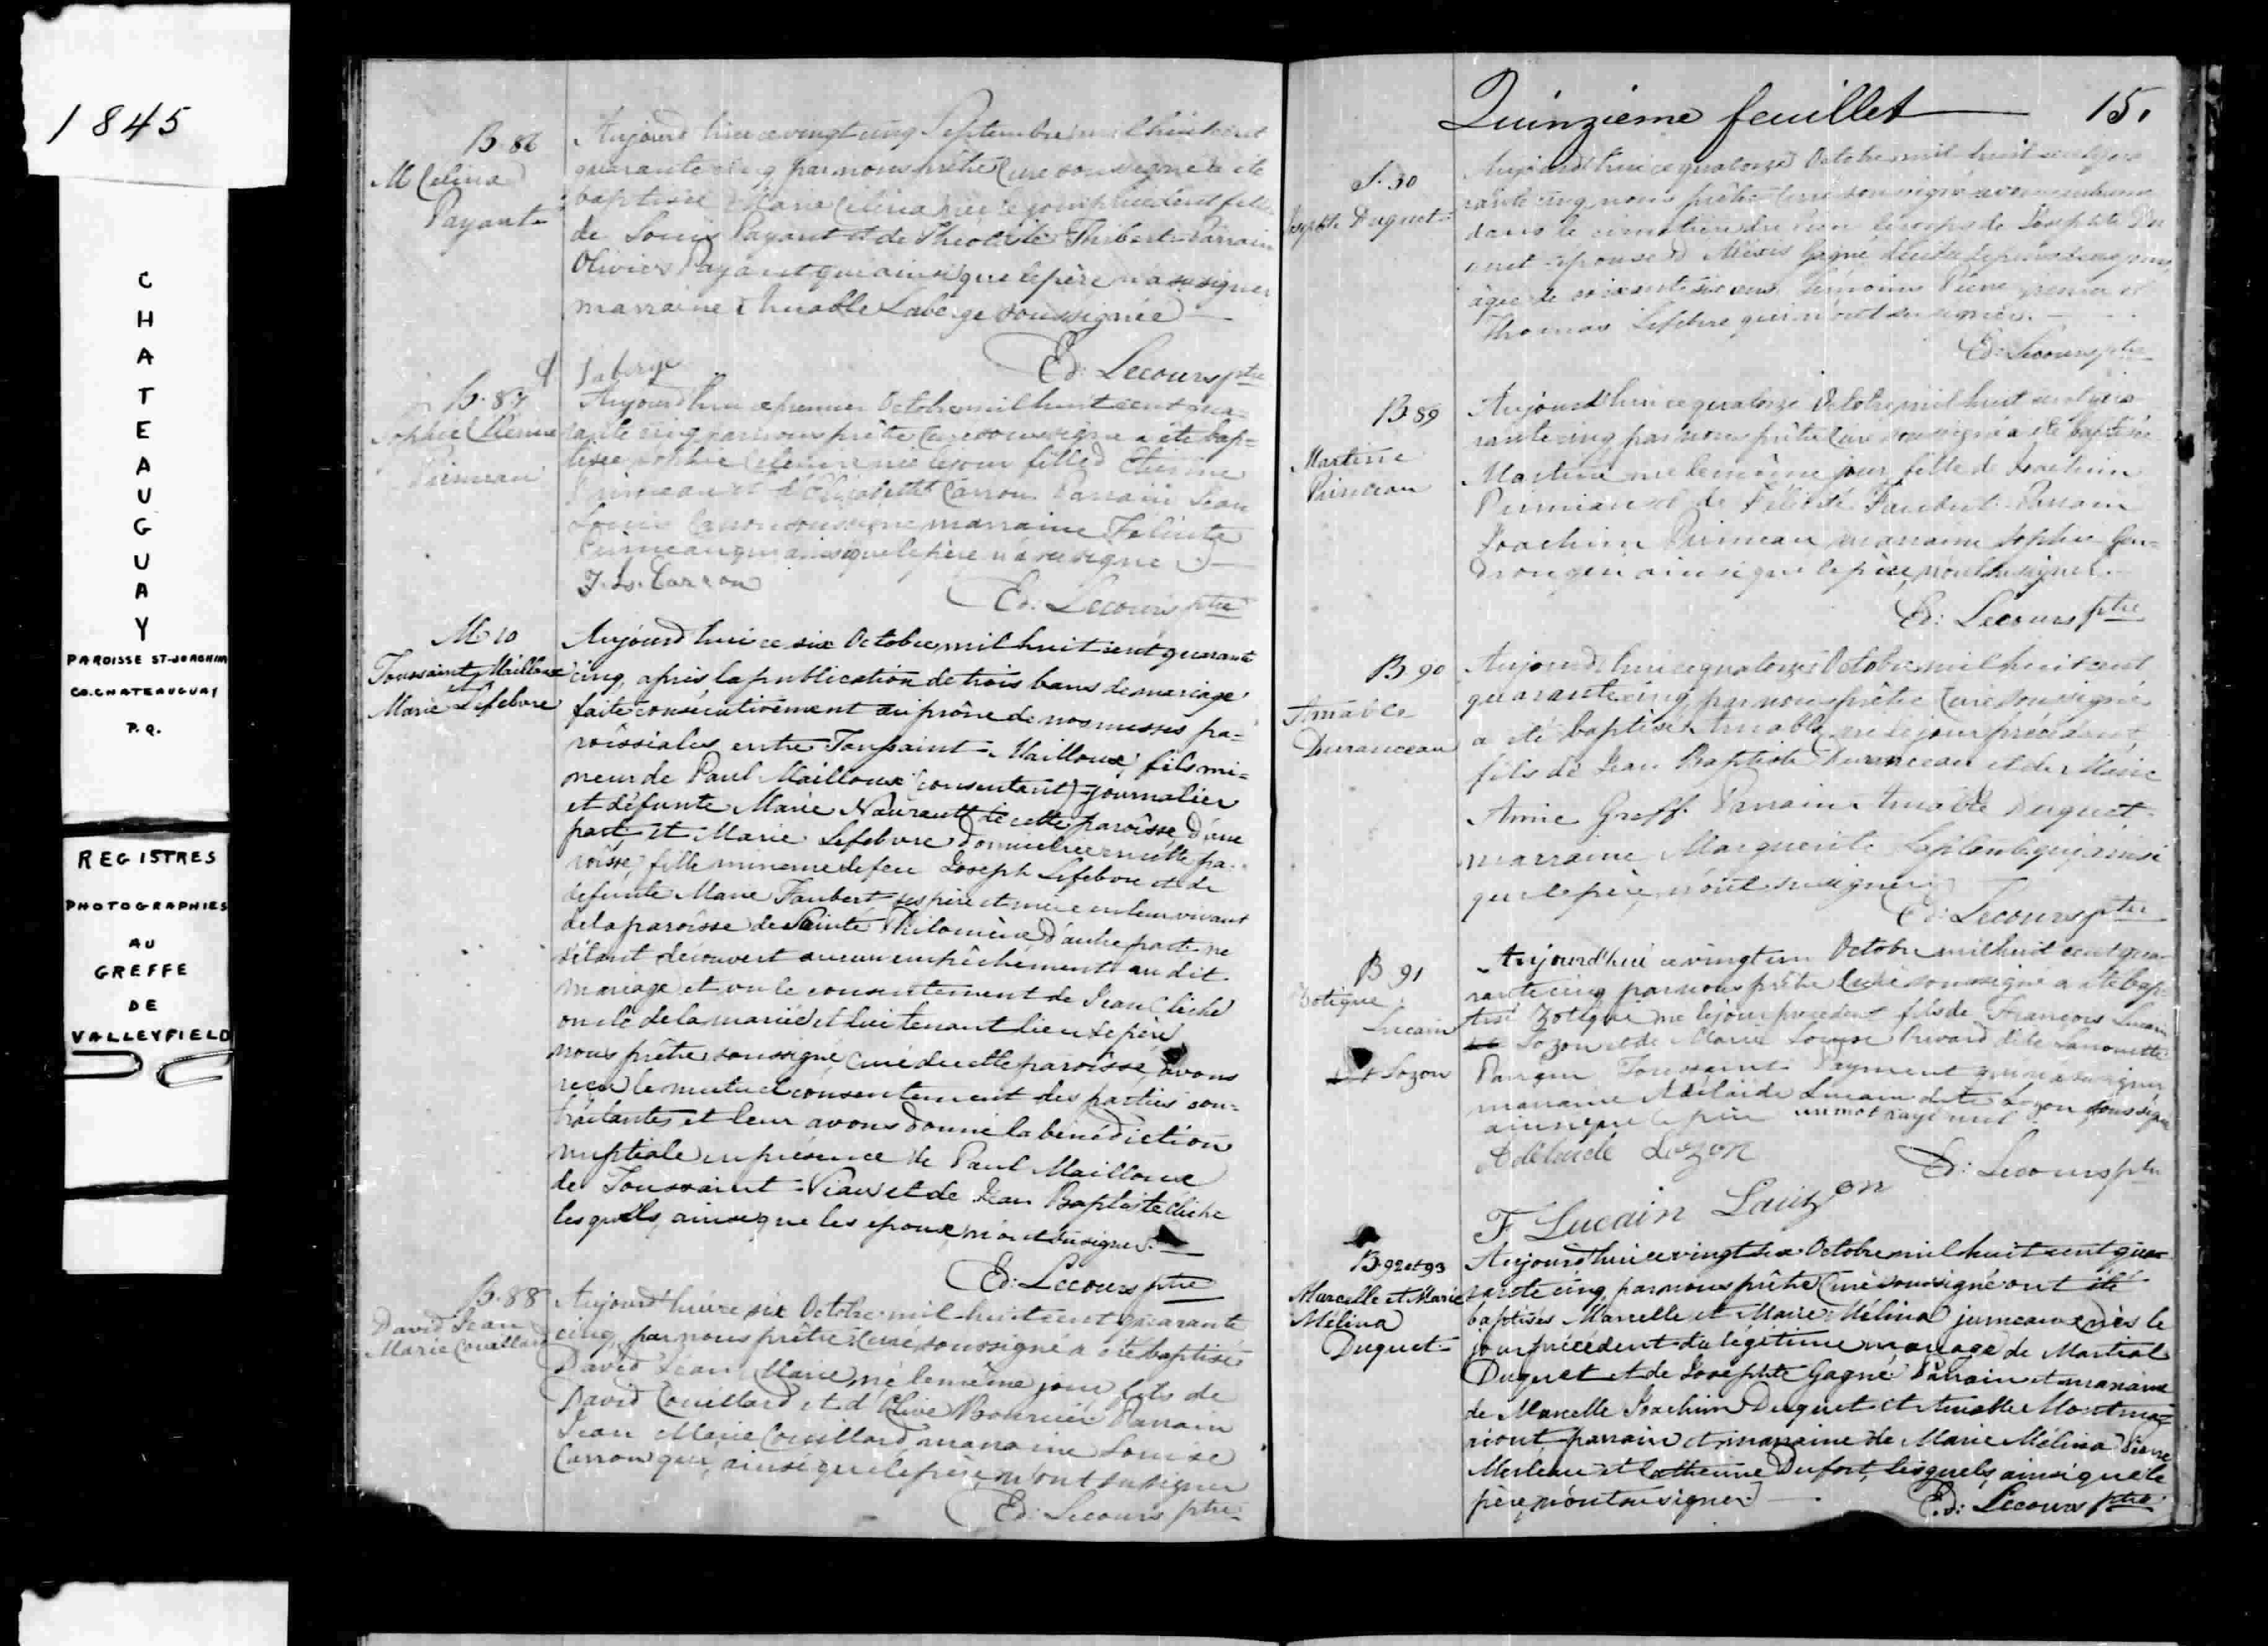 1845
C
H
A
T
E
A
U
G
U
A
Y
PAROISSE ST-JOACHIM
CO. CHATEAUGUAY
P.Q.
REGISTRES
PHOTOGRAPHIES
AU
GREFFE
DE
VALLEYFIELD
B. 86
M Celina
Payant
Aujourd'hui ce vingt cinq Septembre mil huit cent
quarante cinq par nous prêtre Curé soussigné a été
baptisée Marie Celina née le jour précédent fille
de Louis Payant et de Théotiste Thibert Parrain
Olivier Payant qui ainsi que le père n'a su signer
marraine Amable Laberge soussignée
A Laberge
Ed: Lecours ptre
B. 87
Sophie Célénire
Primeau
Aujourd'hui ce premier Octobre mil huit cent qua=
rante cinq par nous prêtre Curé soussigné a été bap=
tisée Sophie Célénire née le jour fille d'Etienne
Primeau et d'Elisabeth Carron Parrain Jean
Louis Caron soussigné marraine Felicité
Primeau qui ainsi que le père n'a su signer
J. Ls. Carron
Ed: Lecours ptre
M 10
Toussaint Mailloux
Marie Lefebvre
Aujourd'hui ce six Octobre mil huit cent quarante
cinq, après la publication de trois bans de mariage
faite consécutivement au prône de nos messes pa=
roissiales entre Toussaint Mailloux, fils mi=
neur de Paul Mailloux (consentant) journalier
et défunte Marie Naurautt de cette paroisse, d'une
part; et Marie Lefebvre domiciliée en cette pa=
roisse, fille mineure de feu Joseph Lefebvre et de
défunte Marie Faubert ses père et mère en leur vivant
de la paroisse de Sainte Philomène d'autre part ne
s'étant découvert aucun empêchement au dit
mariage et vu le consentement de Jean Cliche
oncle de la mariée et lui tenant lieu de père
nous prêtre soussigné, Curé de cette paroisse, avons
reçu le mutuel consentement des parties con=
tractantes et leur avons donné la bénédiction
nuptiale en présence de Paul Mailloux
de Toussaint Viau et de Jean Baptiste Cliche
lesquels, ainsi que les époux, n'ont su signer.
Ed: Lecours ptre
B. 88
David Jean
Marie Couillard
Aujourd'hui ce six Octobre mil huit cent quarante
cinq, par nous prêtre Curé soussigné a été baptisé
David Jean Marie, né le même jour, fils de
David Couillard et d'Olive Boursier Parrain
Jean Marie Couillard marraine Louise
Carron qui, ainsi que le père, n'ont su signer
Ed: Lecours ptre
Quinzième feuillet 15.
S. 30
Josephte Duquet
Aujourd'hui ce quatorze Octobre mil huit cent qua
rante cinq nous prêtre Curé soussigné avons inhumé
dans le cimetière du lieu le corps de Josephte Du
quet épouse d'Alexis Gagné
âgée de soixante six ans témoins Pierre et
Thomas Lefebvre qui n'ont su signer.
Ed: Lecours ptre
B 89
Martine
Primeau
Aujourd'hui ce quatorze Octobre mil huit cent qua
rante cinq par nous prêtre Curé soussigné a été baptisée
Martine née le même jour fille de Joachim
Primeau et de Félicité Faubert Parrain
Joachim Primeau marraine Sophie Gen=
dron qui ainsi que le père, n'ont su signer.
Ed: Lecours ptre
B 90
Amable
Duranceau
Aujourd'hui ce quatorze Octobre mil huit cent
quarante cinq, par nous prêtre Curé soussigné
a été baptisé Amable, né le jour précédent,
fils de Jean Baptiste Duranceau et de Marie
Amie Groff. Parrain Amable Duquet
marraine Marguerite Laplante qui, ainsi
que le père, n'ont su signer
Ed: Lecours ptre
B 91
Zotique
Lucain
dit Lozon
Aujourd'hui ce vingt un Octobre mil huit cent qua
rante cinq par nous prêtre Curé soussigné a été bap=
tisé Zotique né le jour précédent fils de François Lucain
Lozon et de Marie Louise Privard dite Lanouette
Parrain Toussaint Payment qui n'a su signer
marraine Adélaïde Lucain dite Lozon soussignée
ainsi que le père un mot rayé nul
Adélaide Lozon
Ed: Lecours ptre
F Lucain Lauzon
B. 92 et 93
Marcelle et Marie
Mélina
Duquet
Aujourd'hui ce vingt six Octobre mil huit cent qua=
rante cinq, par nous prêtre Curé soussigné ont été
baptisés Marcelle et Marie Mélina jumeaux nés le
jour précédent du légitime mariage de Martial
Duquet et de Josephte Gagné Parrain et marraine
de Marcelle Joachim Duquet et Amable
parrain et marraine de Marie Mélina Pierre
Merleau et Catherine Dufort, lesquels, ainsi que le
père, n'ont su signer
Ed: Lecours ptre